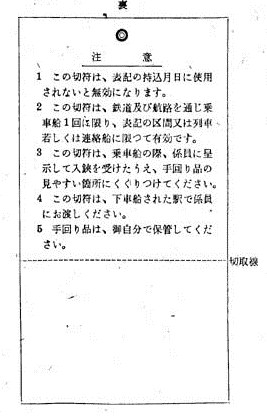 裏
注意
1 この切符は、表記の持込月日に使用
されないと無効になります。
2 この切符は、鉄道及び航路を通じ乗
車船1回に限り、表記の区間又は列車
若しくは連絡船に限つて有効です。
3 この切符は、乗車船の際、係員に呈
示して入鋏を受けたうえ、手回り品の
見やすい箇所にくくりつけてください。
4 この切符は、下車船された駅で係員
にお渡しください。
5 手回り品は、御自分で保管してくだ
さい。
切取線